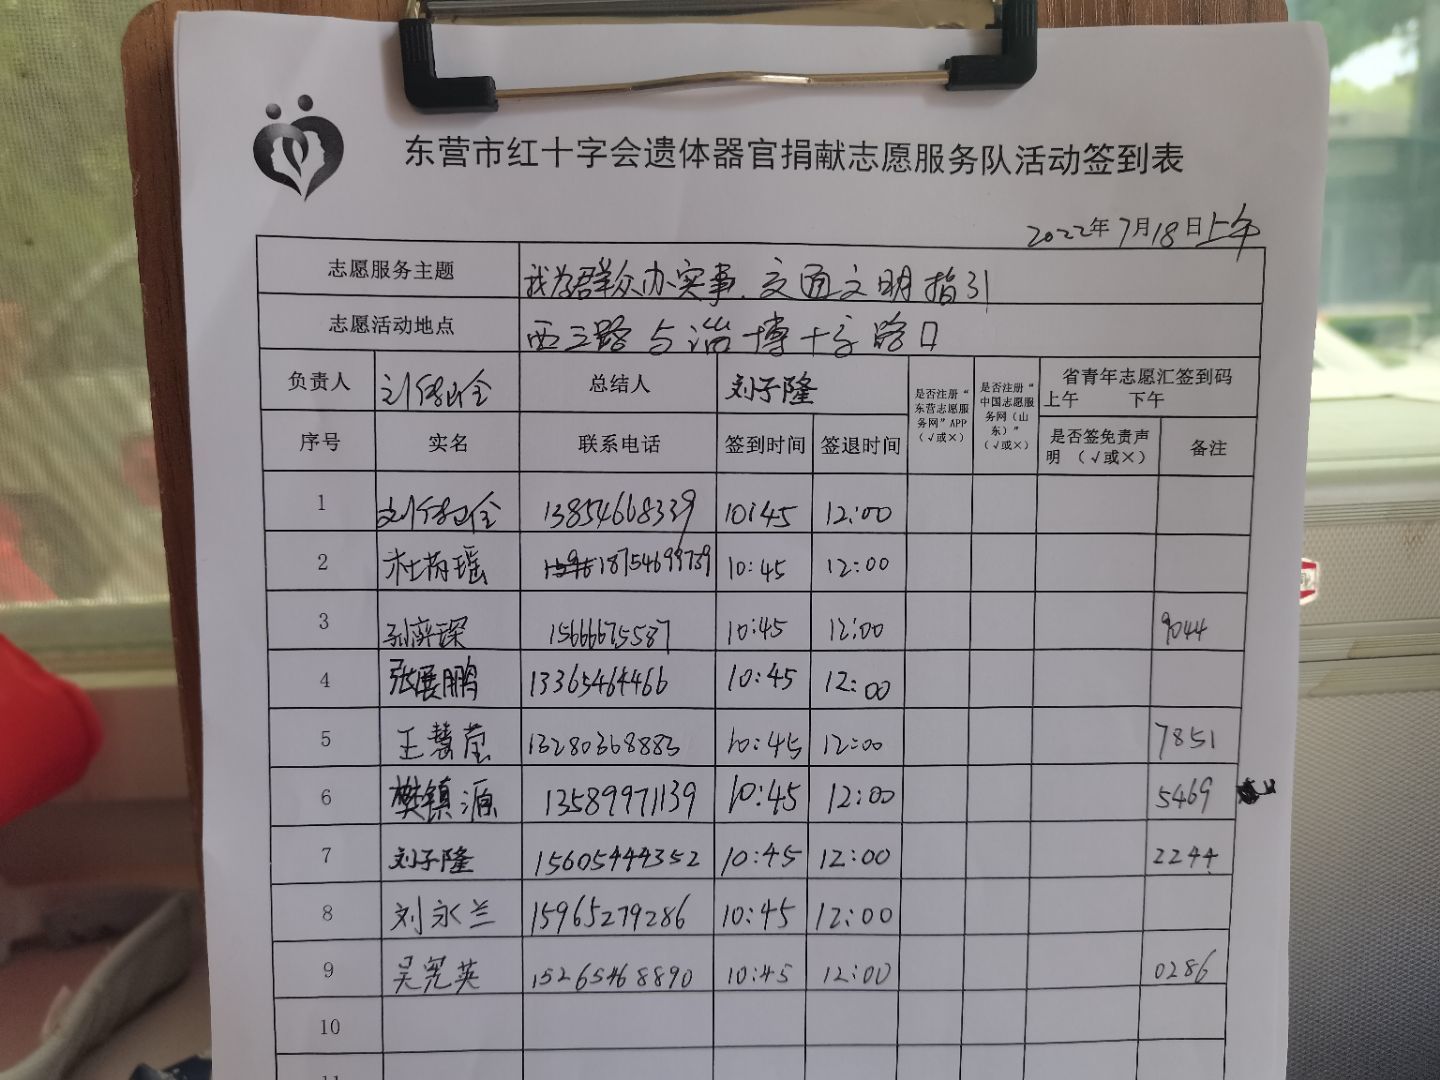 东营市红十字会遗体器官捐献志愿服务队活动签到表
2022年7月18日上午
志愿服务主题 我为群众办实事.交通文明指引
志愿活动地点 西三路与淄博十字路口
负责人 总结人 刘子隆 是否注册“东营志愿服务网”APP（√或×） 是否注册“中国志愿服务网（山东）”（√或×） 省青年志愿汇签到码 上午 下午
序号 实名 联系电话 签到时间 签退时间 是否签免责声明 （√或×） 备注
1 13854668339 10:45 12:00
2 杜芮瑶 18754699739 10:45 12:00
3 15666675587 10:45 12:00 9044
4 张展鹏 13365464466 10:45 12:00
5 王慧莹 13280368883 10:45 12:00 7851
6 樊镇源 13589971139 10:45 12:00 5469
7 刘子隆 15605444352 10:45 12:00 2244
8 刘永兰 15965279286 10:45 12:00
9 吴宪英 15265468890 10:45 12:00 0286
10
11